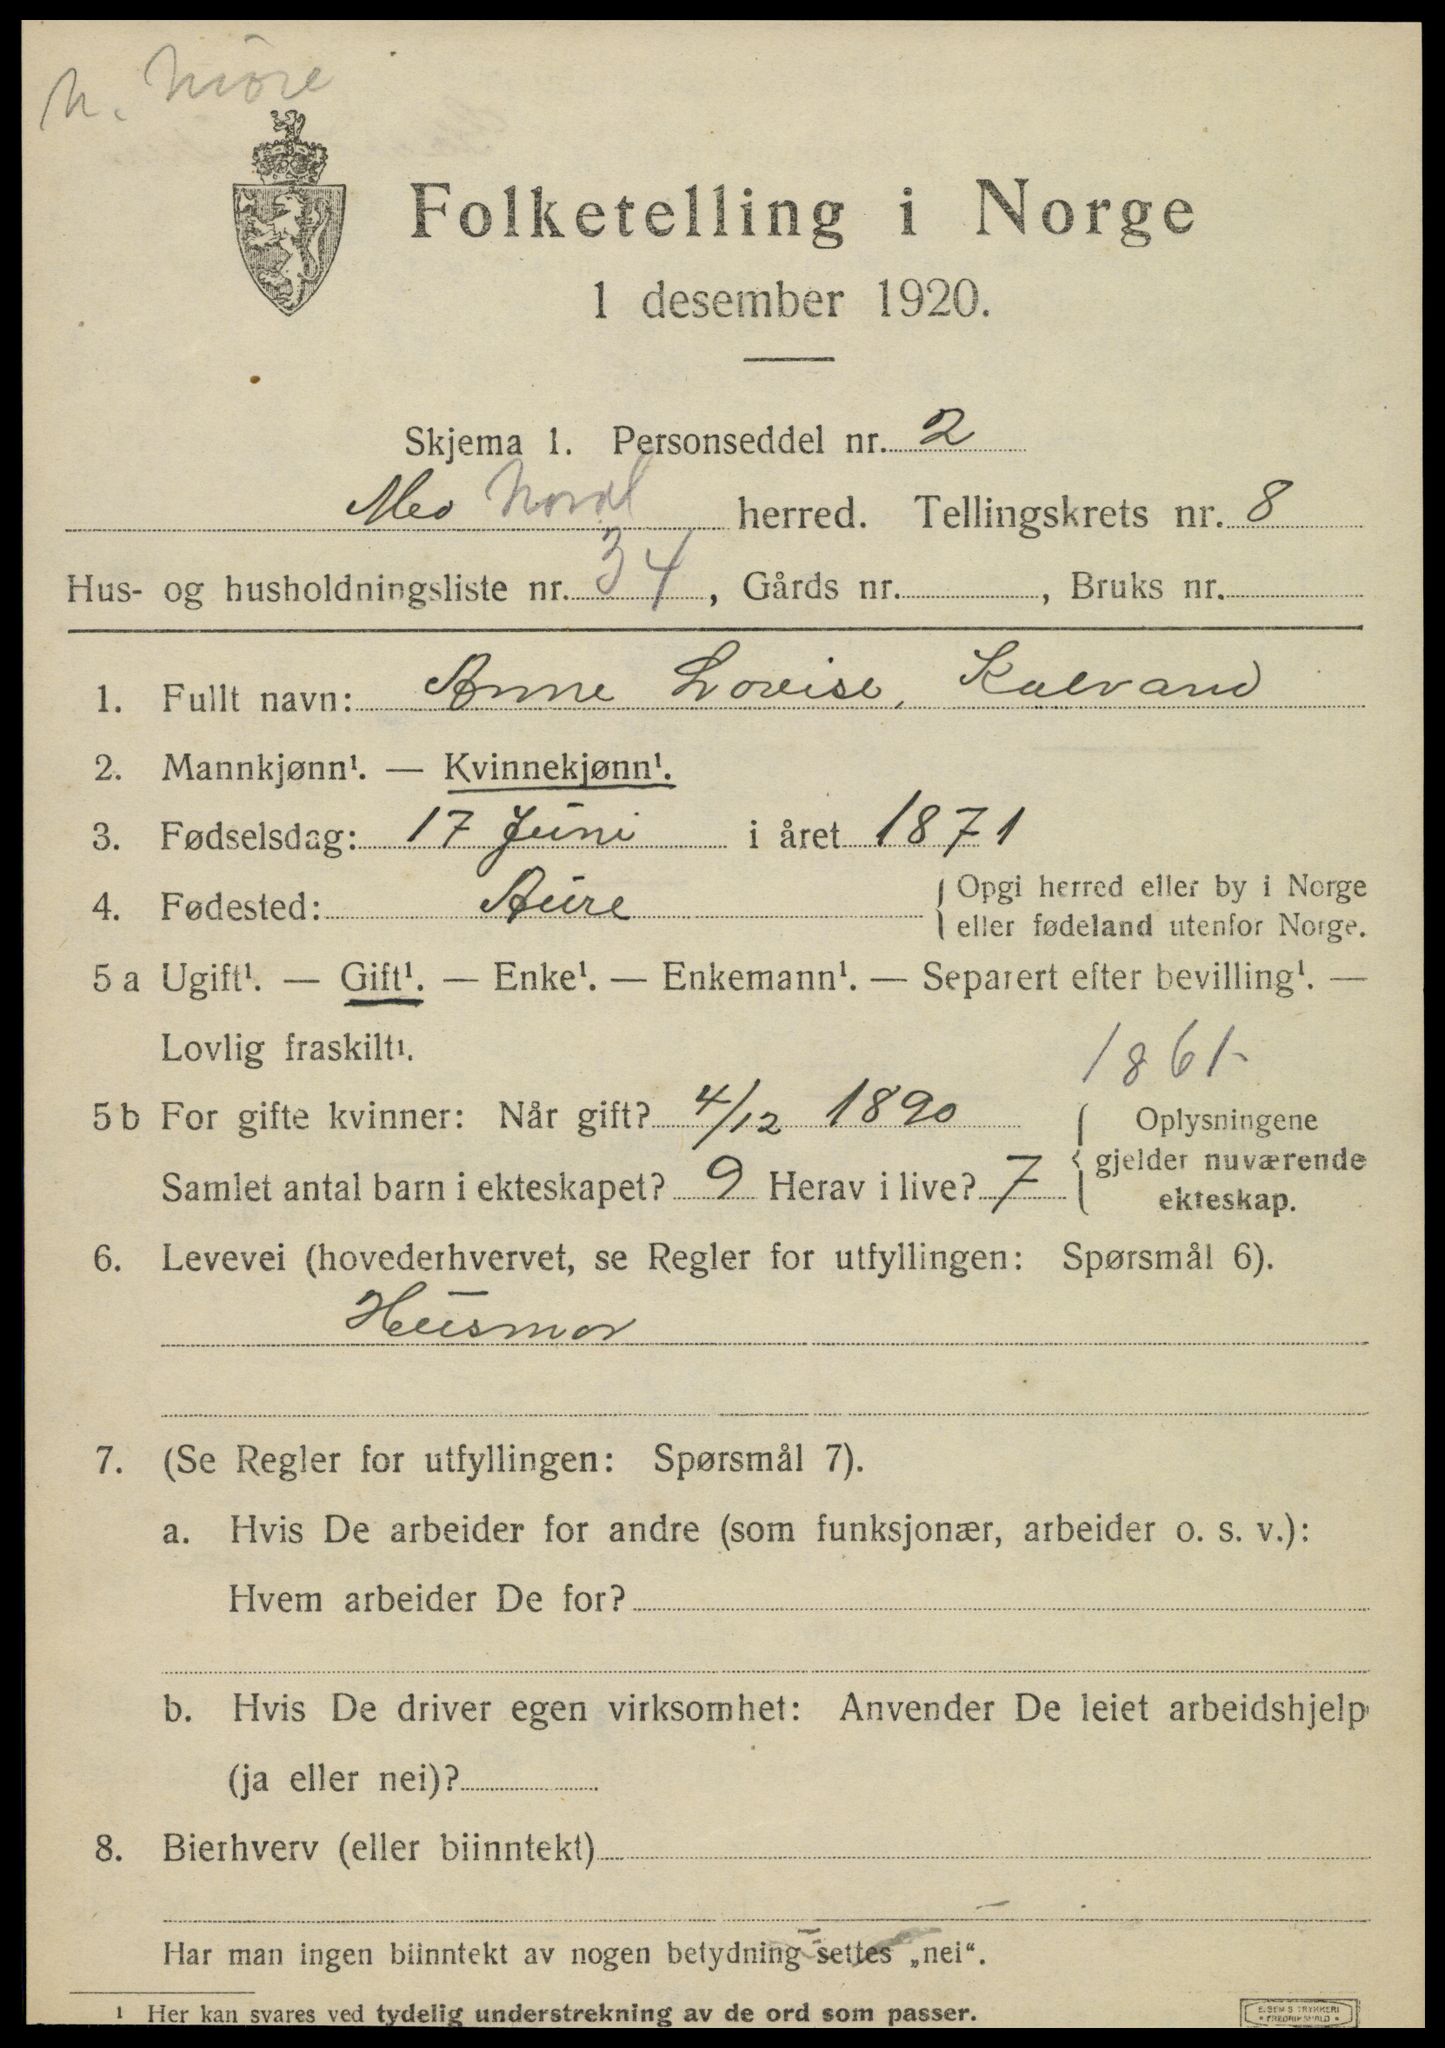 N. Möre
Folketelling i Norge
1 desember 1920.
Skjema 1. Personseddel nr. 2
Meo Nordl herred. Tellingskrets nr. 8
Hus- og husholdningsliste nr. 34, Gårds nr. , Bruks nr.
1. Fullt navn: Anne Lovise, Kalvand
2. Mannkjønn¹. — Kvinnekjønn¹.
3. Fødselsdag: 17 Juni i året 1871
4. Fødested: Aure { Opgi herred eller by i Norge
eller fødeland utenfor Norge.
5 a Ugift¹. — Gift¹. — Enke¹. — Enkemann¹. — Separert efter bevilling¹. —
Lovlig fraskilt¹.
1861-
5 b For gifte kvinner: Når gift? 4/12 1890 { Oplysningene
gjelder nuværende
ekteskap.
Samlet antal barn i ekteskapet? 9 Herav i live? 7
6. Levevei (hovederhvervet, se Regler for utfyllingen: Spørsmål 6).
Husmor
7. (Se Regler for utfyllingen: Spørsmål 7).
a. Hvis De arbeider for andre (som funksjonær, arbeider o. s. v.):
Hvem arbeider De for?
b. Hvis De driver egen virksomhet: Anvender De leiet arbeidshjelp
(ja eller nei)?
8. Bierhverv (eller biinntekt)
Har man ingen biinntekt av nogen betydning settes „nei“.
¹ Her kan svares ved tydelig understrekning av de ord som passer.
E. SEM'S TRYKKERI
• FREDRIKSHALD •